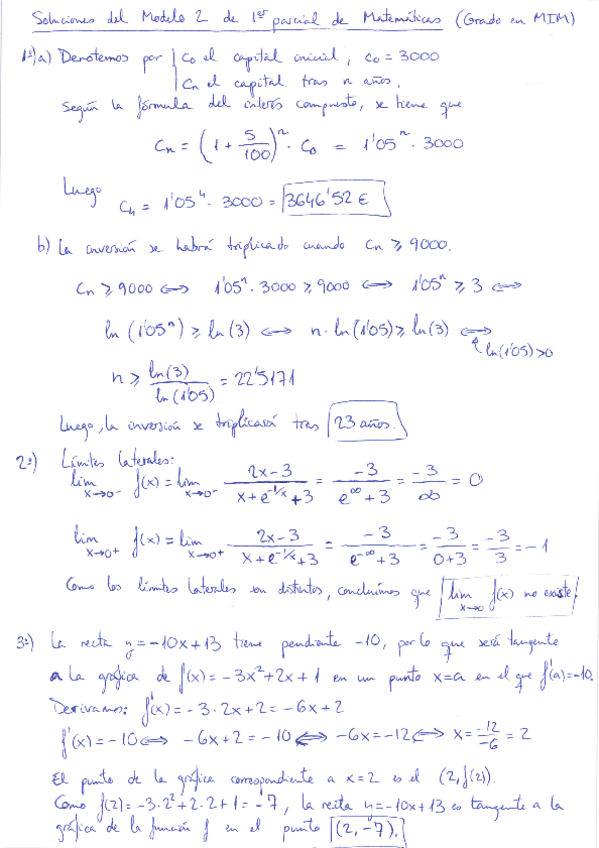 Soluciones del Modelo 2 de 1er parcial de Matemáticas (Grado en MIM)
1º)a) Denotemos por { C0 el capital inicial, C0 = 3000
Cn el capital tras n años.
Según la fórmula del interés compuesto, se tiene que
Cn = (1 + 5/100)^n · C0 = 1'05^n · 3000
Luego
C4 = 1'05^4 · 3000 = 3646'52 €
b) La inversión se habrá triplicado cuando Cn ⩾ 9000.
Cn ⩾ 9000 ⟺ 1'05^n · 3000 ⩾ 9000 ⟺ 1'05^n ⩾ 3 ⟺
ln (1'05^n) ⩾ ln(3) ⟺ n · ln(1'05) ⩾ ln(3) ⟺
ln(1'05)>0
n ⩾ ln(3)/ln(1'05) = 22'5171
Luego, la inversión se triplicará tras 23 años.
2º) Límites laterales:
lim x→0- f(x) = lim x→0- (2x-3)/(x+e^(-1/x)+3) = -3/(e^∞+3) = -3/∞ = 0
lim x→0+ f(x) = lim x→0+ (2x-3)/(x+e^(-1/x)+3) = -3/(e^-∞+3) = -3/(0+3) = -3/3 = -1
Como los límites laterales son distintos, concluimos que lim x→0 f(x) no existe.
3º) La recta y = -10x+13 tiene pendiente -10, por lo que será tangente
a la gráfica de f(x) = -3x²+2x+1 en un punto x=a en el que f'(a)=-10.
Derivamos: f'(x) = -3·2x+2 = -6x+2
f'(x) = -10 ⟺ -6x+2 = -10 ⟺ -6x = -12 ⟺ x = -12/-6 = 2
El punto de la gráfica correspondiente a x=2 es el (2, f(2)).
Como f(2) = -3·2²+2·2+1 = -7, la recta y=-10x+13 es tangente a la
gráfica de la función f en el punto (2, -7).